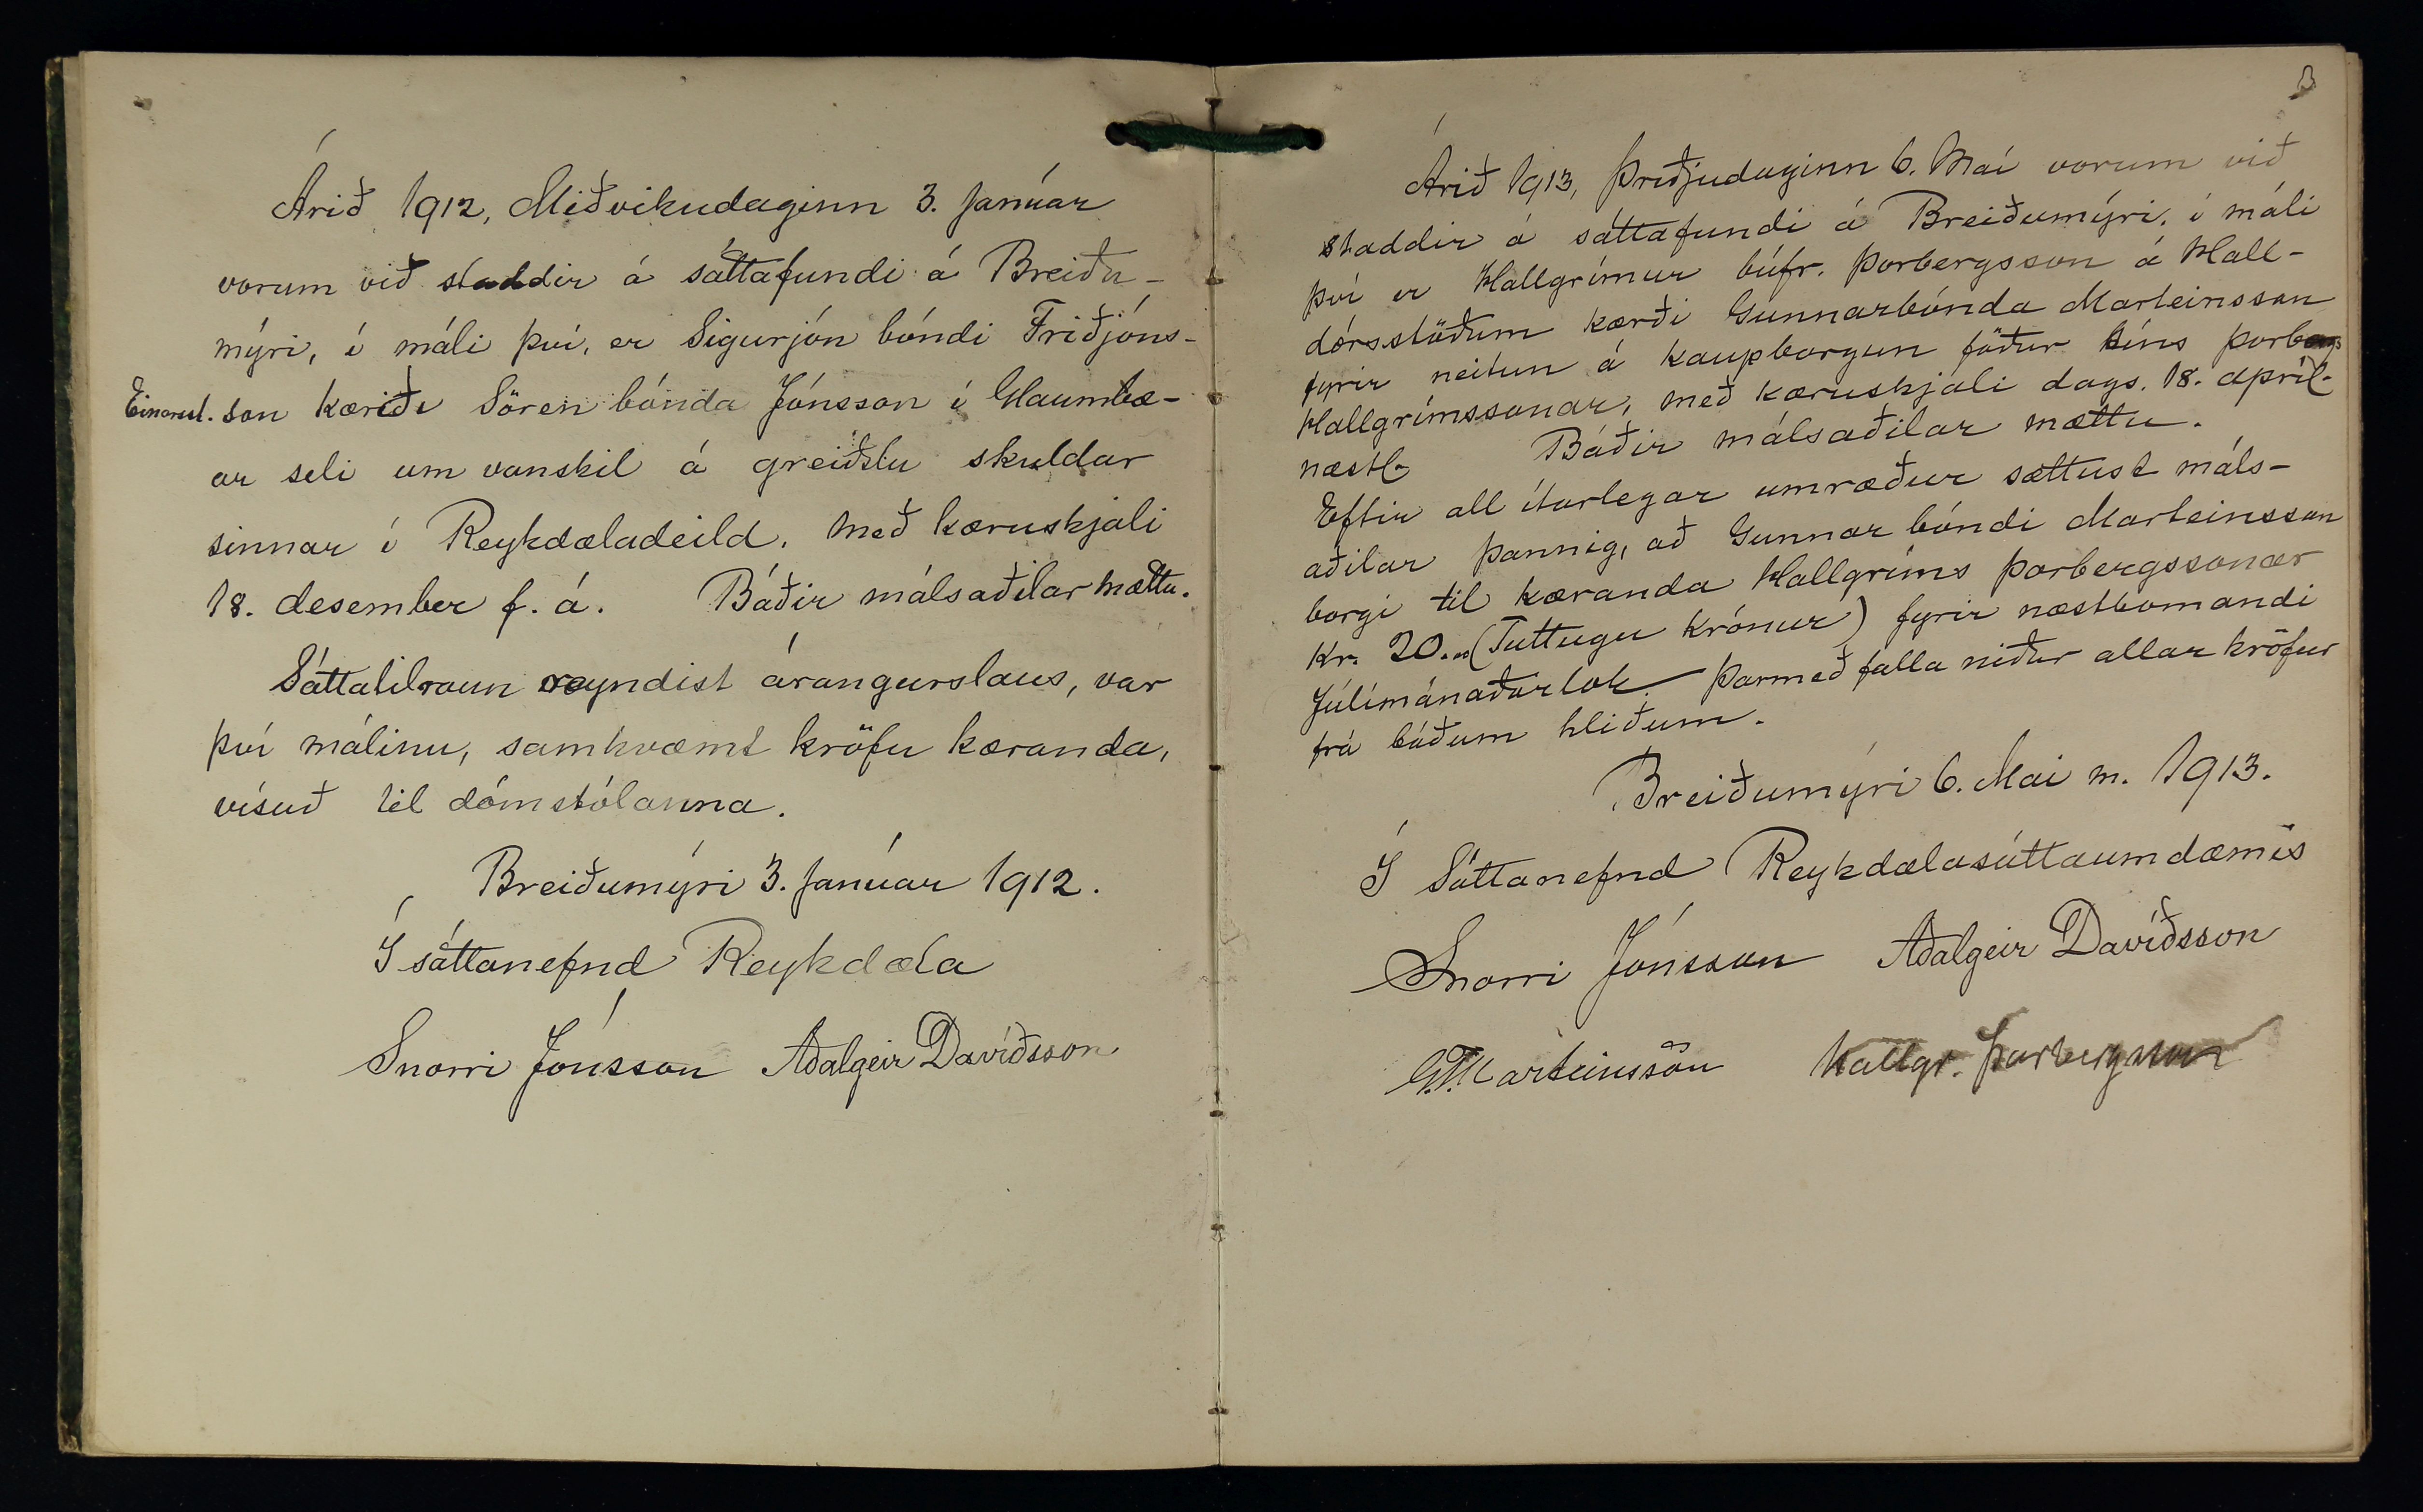 Árið 1912, Miðvikudaginn 3. Janúar
vorum við staddir á sáttafundi á Breiðu-
mýri, í máli því, er Sigurjón bóndi Friðjóns-
son kæriði Sören bónda Jónsson í Glaumbæ-
Einarsst.
ar seli um vanskil á greiðslu skuldar
sinnar í Reykdæladeild. Með kæruskjali
18. desember f. á. Báðir málsaðilar mættu.
Sáttatilraun reyndist árangurslaus, var
því málinu, samkvæmt kröfu kæranda,
vísuð til dómstólanna.
Breiðumýri 3. Janúar 1912.
Í sáttanefnd Reykdæla
Snorri Jónsson Aðalgeir Davíðsson
3
Árið 1913, Þriðjudaginn 6. Maí vorum við
staddir á sáttafundi á Breiðumýri, í máli
því er Hallgrímur búfr. Þorbergsson á Hall-
dórsstöðum kærði Gunnar bónda Marteinsson
fyrir neitun á kaupborgun föður síns Þorbergs
Hallgrímssonar, með kæruskjali dags. 18. apríl
næstl. Báðir málsaðilar mættu.
Eftir all ítarlegar umræður sættust máls-
aðilar þannig, að Gunnar bóndi Marteinsson
borgi til kæranda Hallgríms Þorbergssonar
Kr. 20.00 (Tuttugu krónur) fyrir næstkomandi
Júlímánaðarlok. Þarmeð falla niður allar kröfur
frá báðum hliðum.
Breiðumýri 6. Mai m. 1913.
Í Sáttanefnd Reykdælasáttaumdæmis
Snorri Jónsson Aðalgeir Davíðsson
G. Marteinsson Hallgr. Þorbergsson